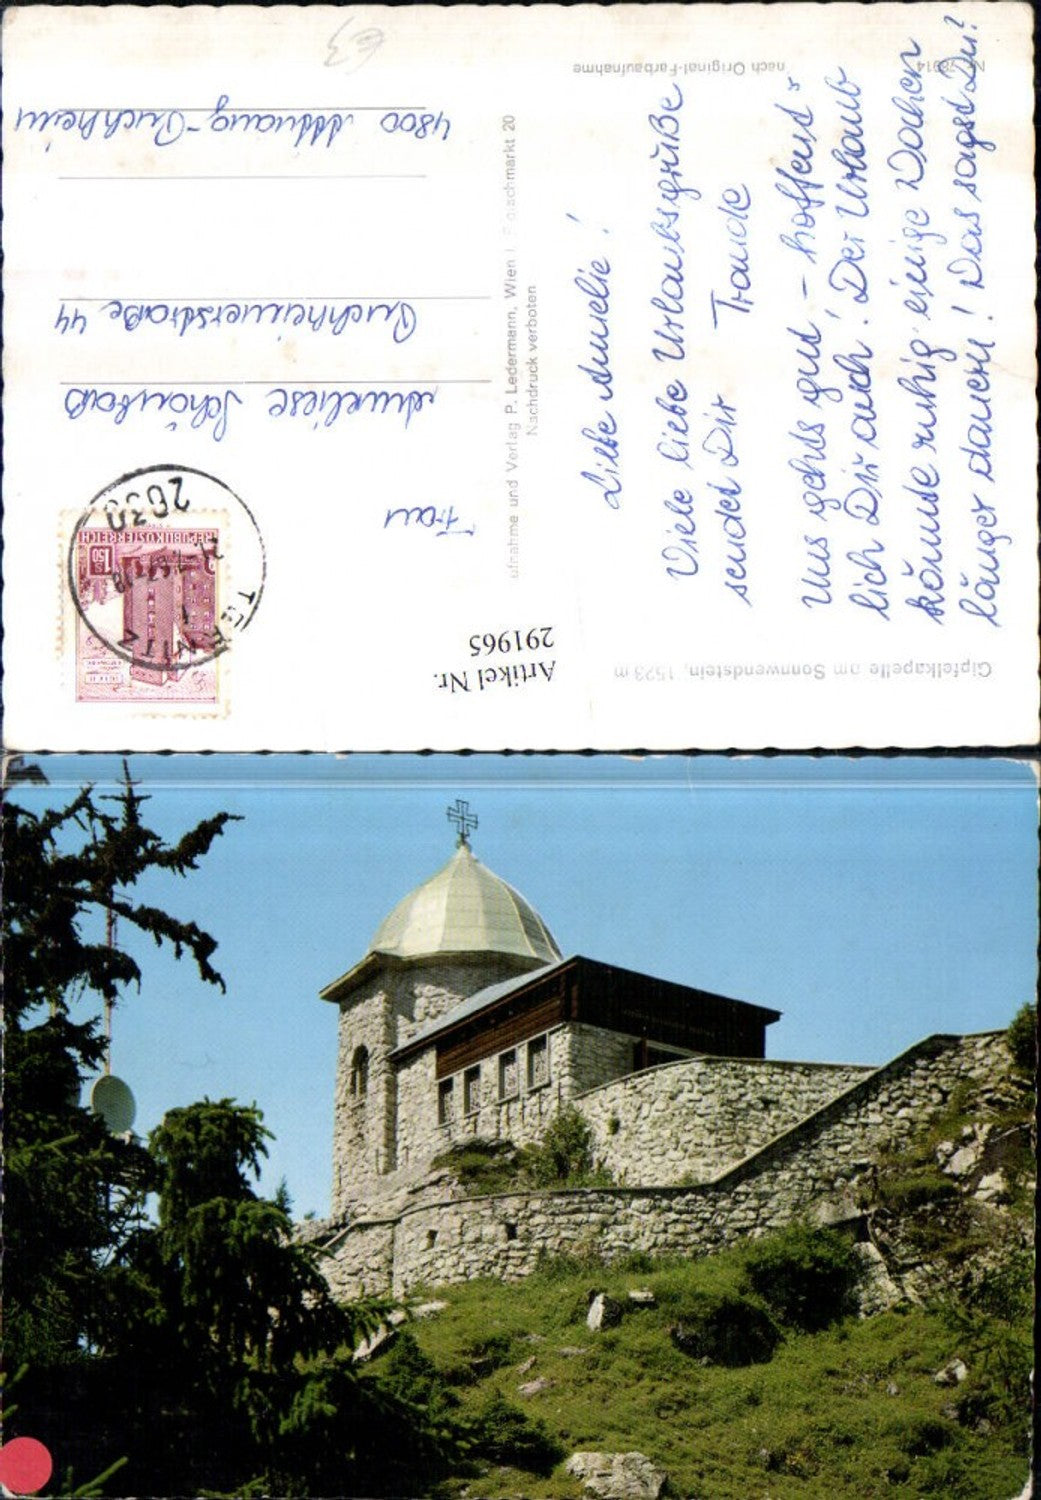 Gipfelkapelle am Sonnwendstein, 1523 m
Liebe Annelie!
Viele liebe Urlaubsgrüße
sendet Dir
Traude
Uns gehts gut – hoffent-
lich Dir auch! Der Urlaub
könnte ruhig einige Wochen
länger dauern! Das sagst Du?
nach Original-Farbaufnahme
Aufnahme und Verlag P. Ledermann, Wien I, Fleischmarkt 20
Nachdruck verboten
Artikel Nr.
291965
REPUBLIK ÖSTERREICH
1.50
2630
TERNITZ
1
Frau
Anneliese Schönbaß
Puchheimerstraße 44
4800 Attnang-Puchheim
€3